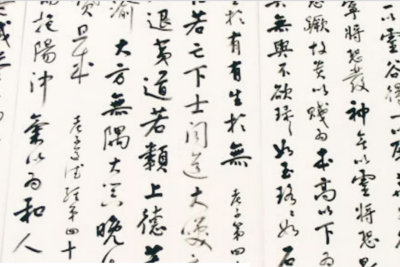 一以靈谷得一以盈
寧將恐發神無以靈將恐
恐蹶故貴以賤為本高以下為
無輿不欲琭〻如玉珞〻如石
於有有生於無 老子第四
若亡下士聞道大笑
退夷道若纇上德若
渝大方無隅大器晚
貸且成 老子道德經第四十
抱陽沖氣以為和人